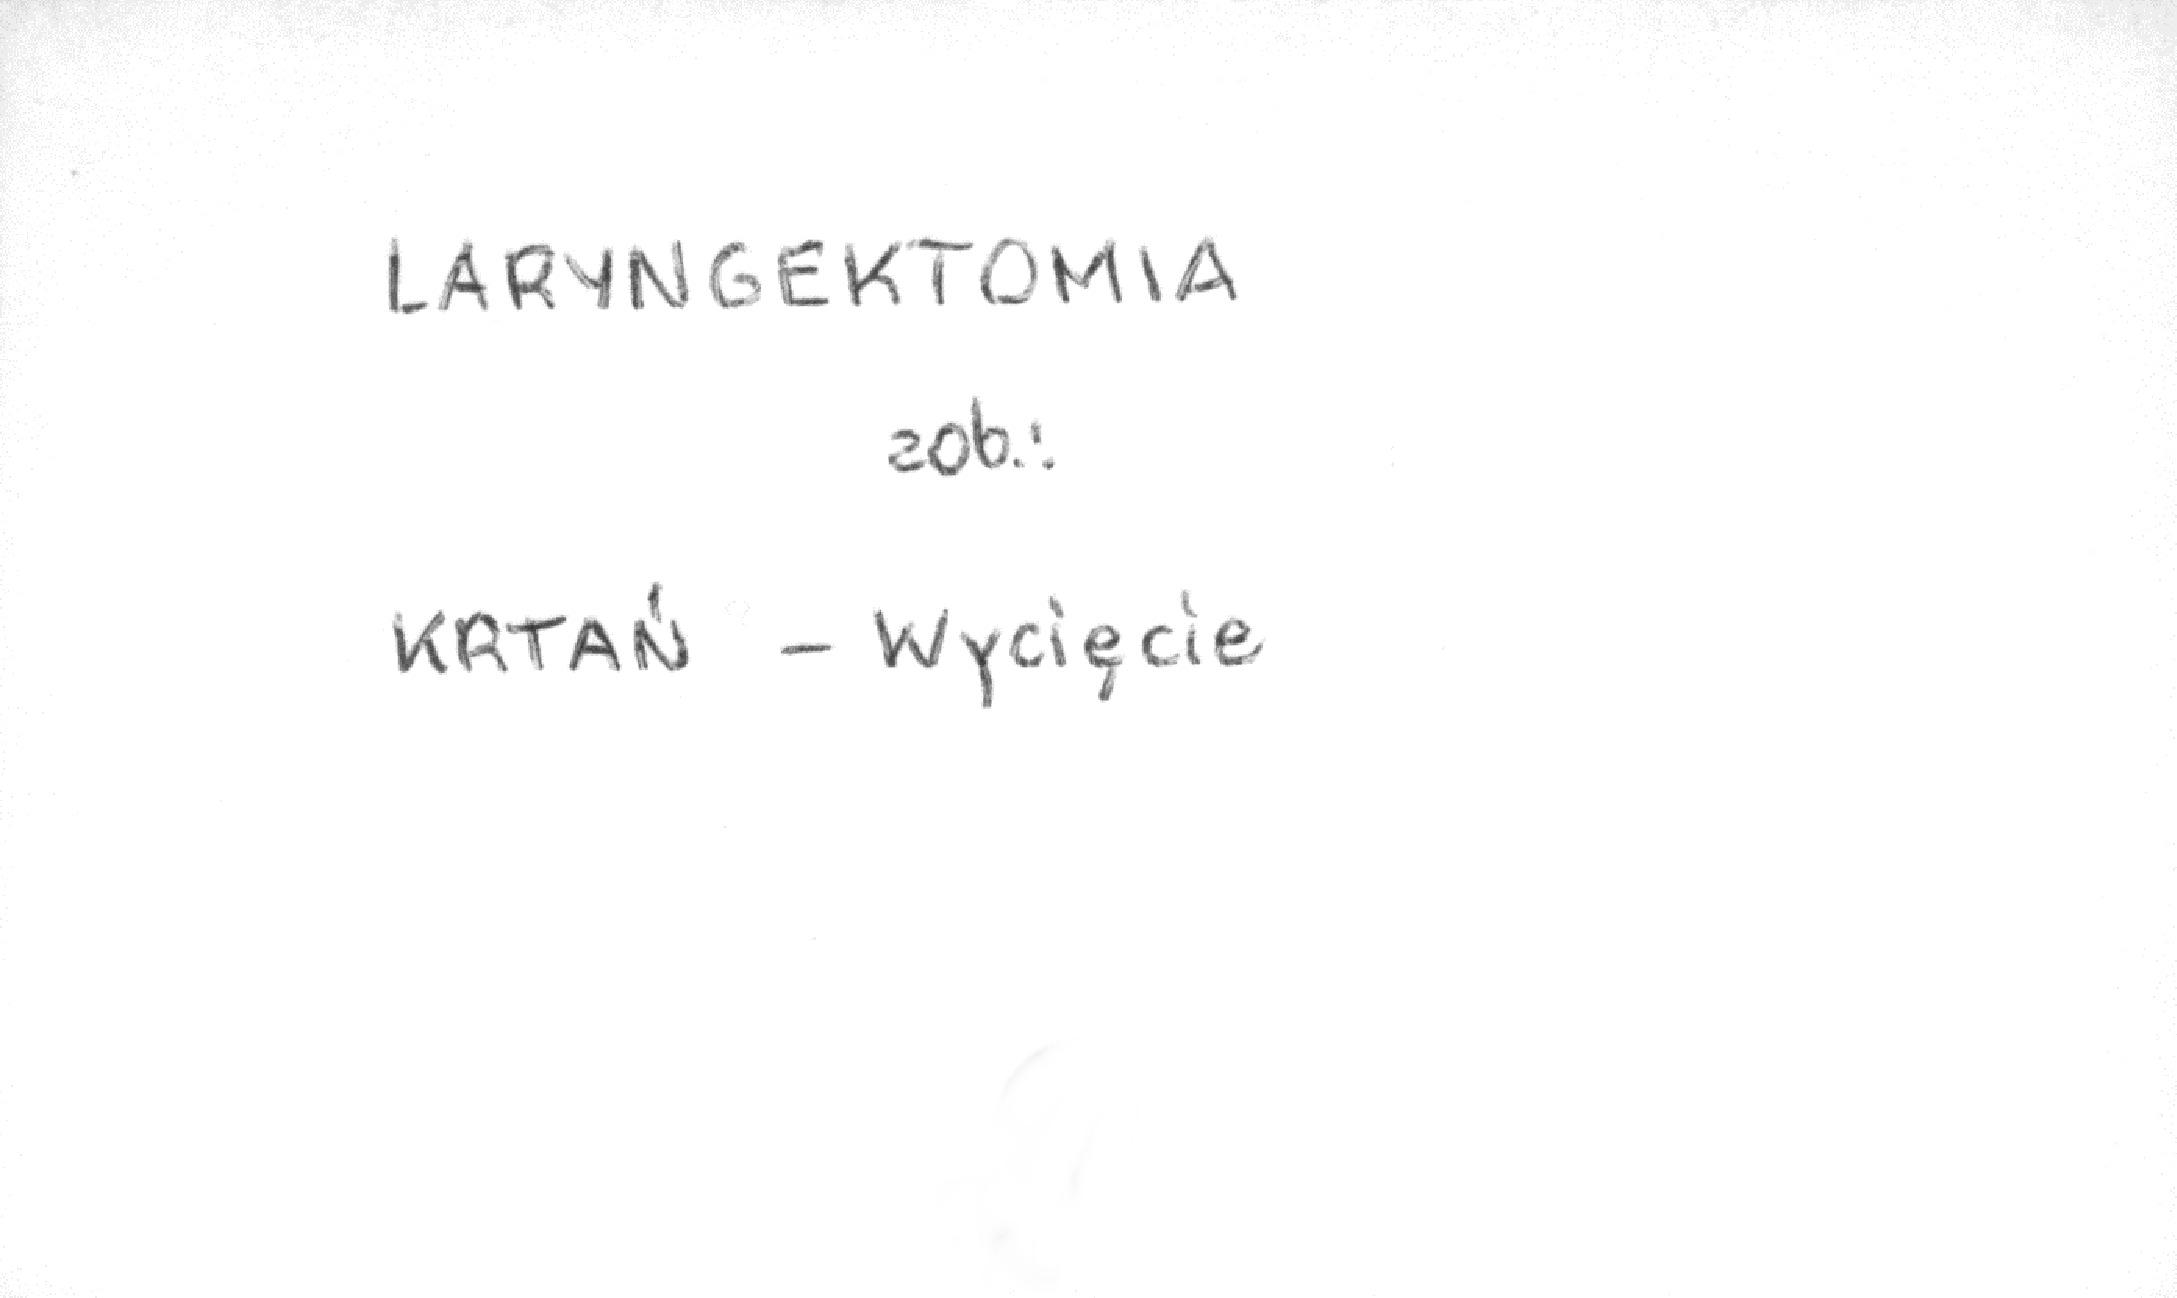 LARYNGEKTOMIA
zob.:
KRTAŃ - Wycięcie